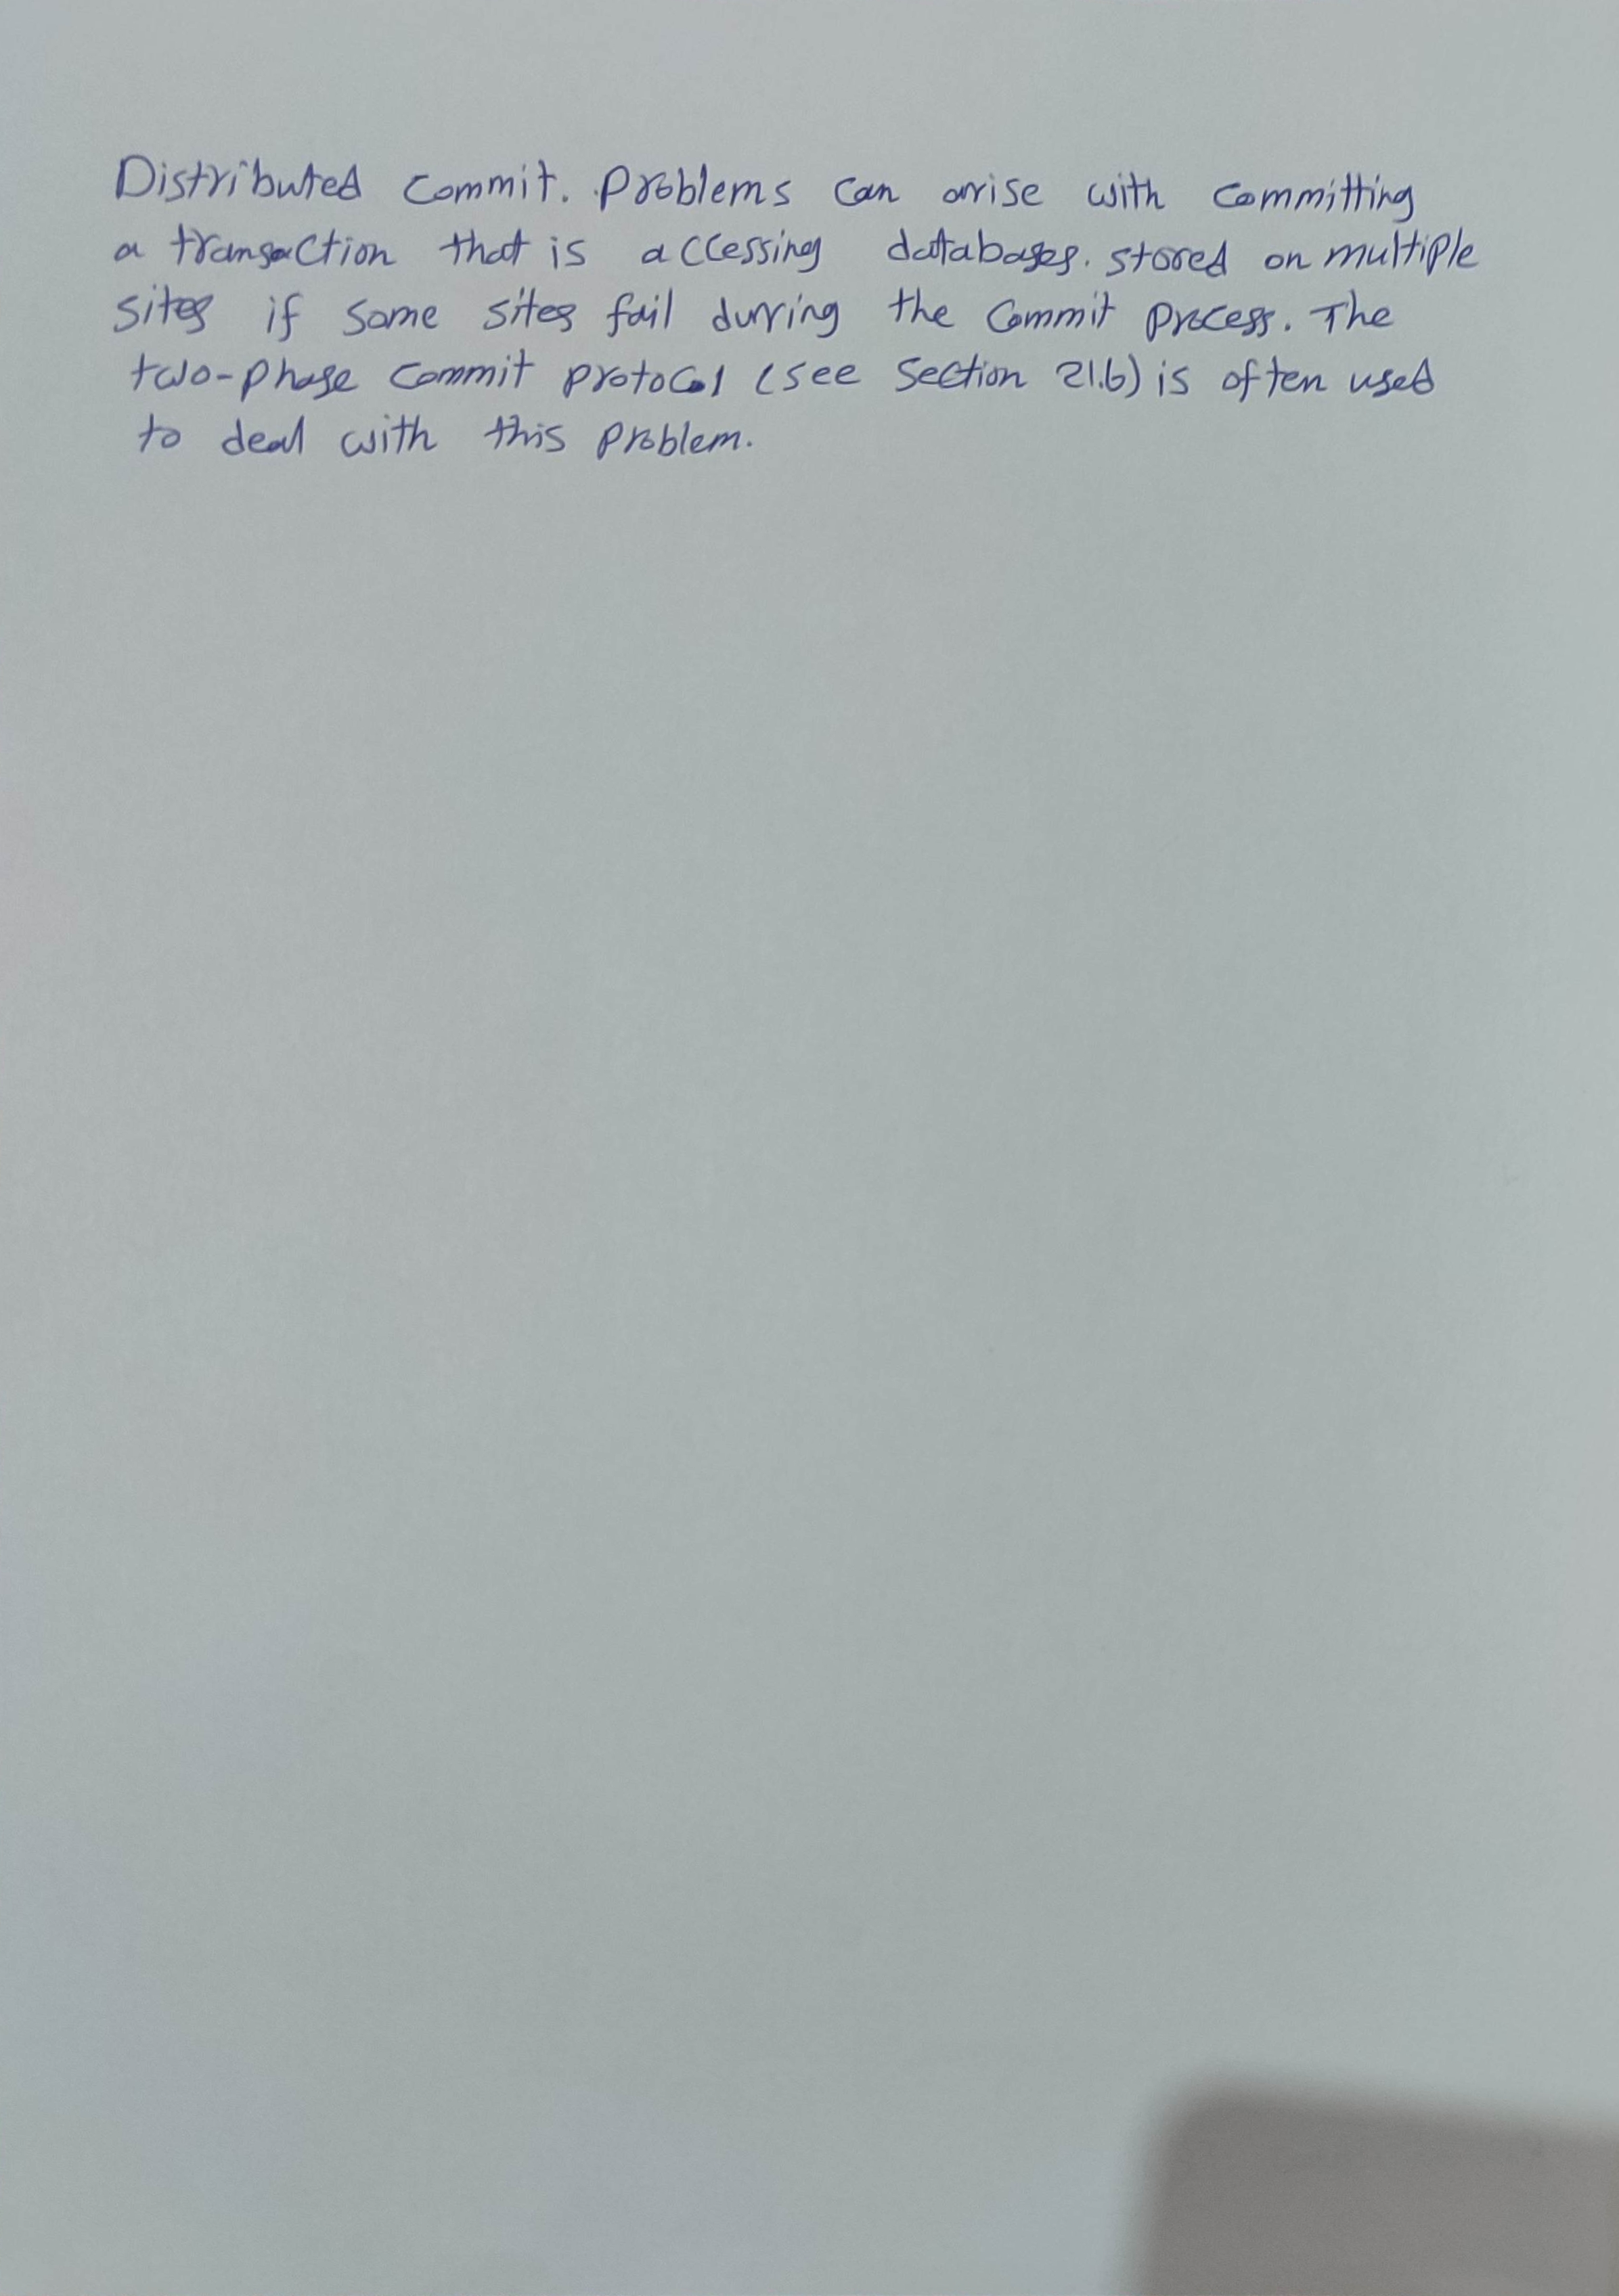 Distributed Commit. Problems can arise with committing
a transaction that is accessing databases. stored on multiple
sites if some sites fail durring the commit process. The
two-phase commit protocol (see section 21.6) is often used
to deal with this problem.